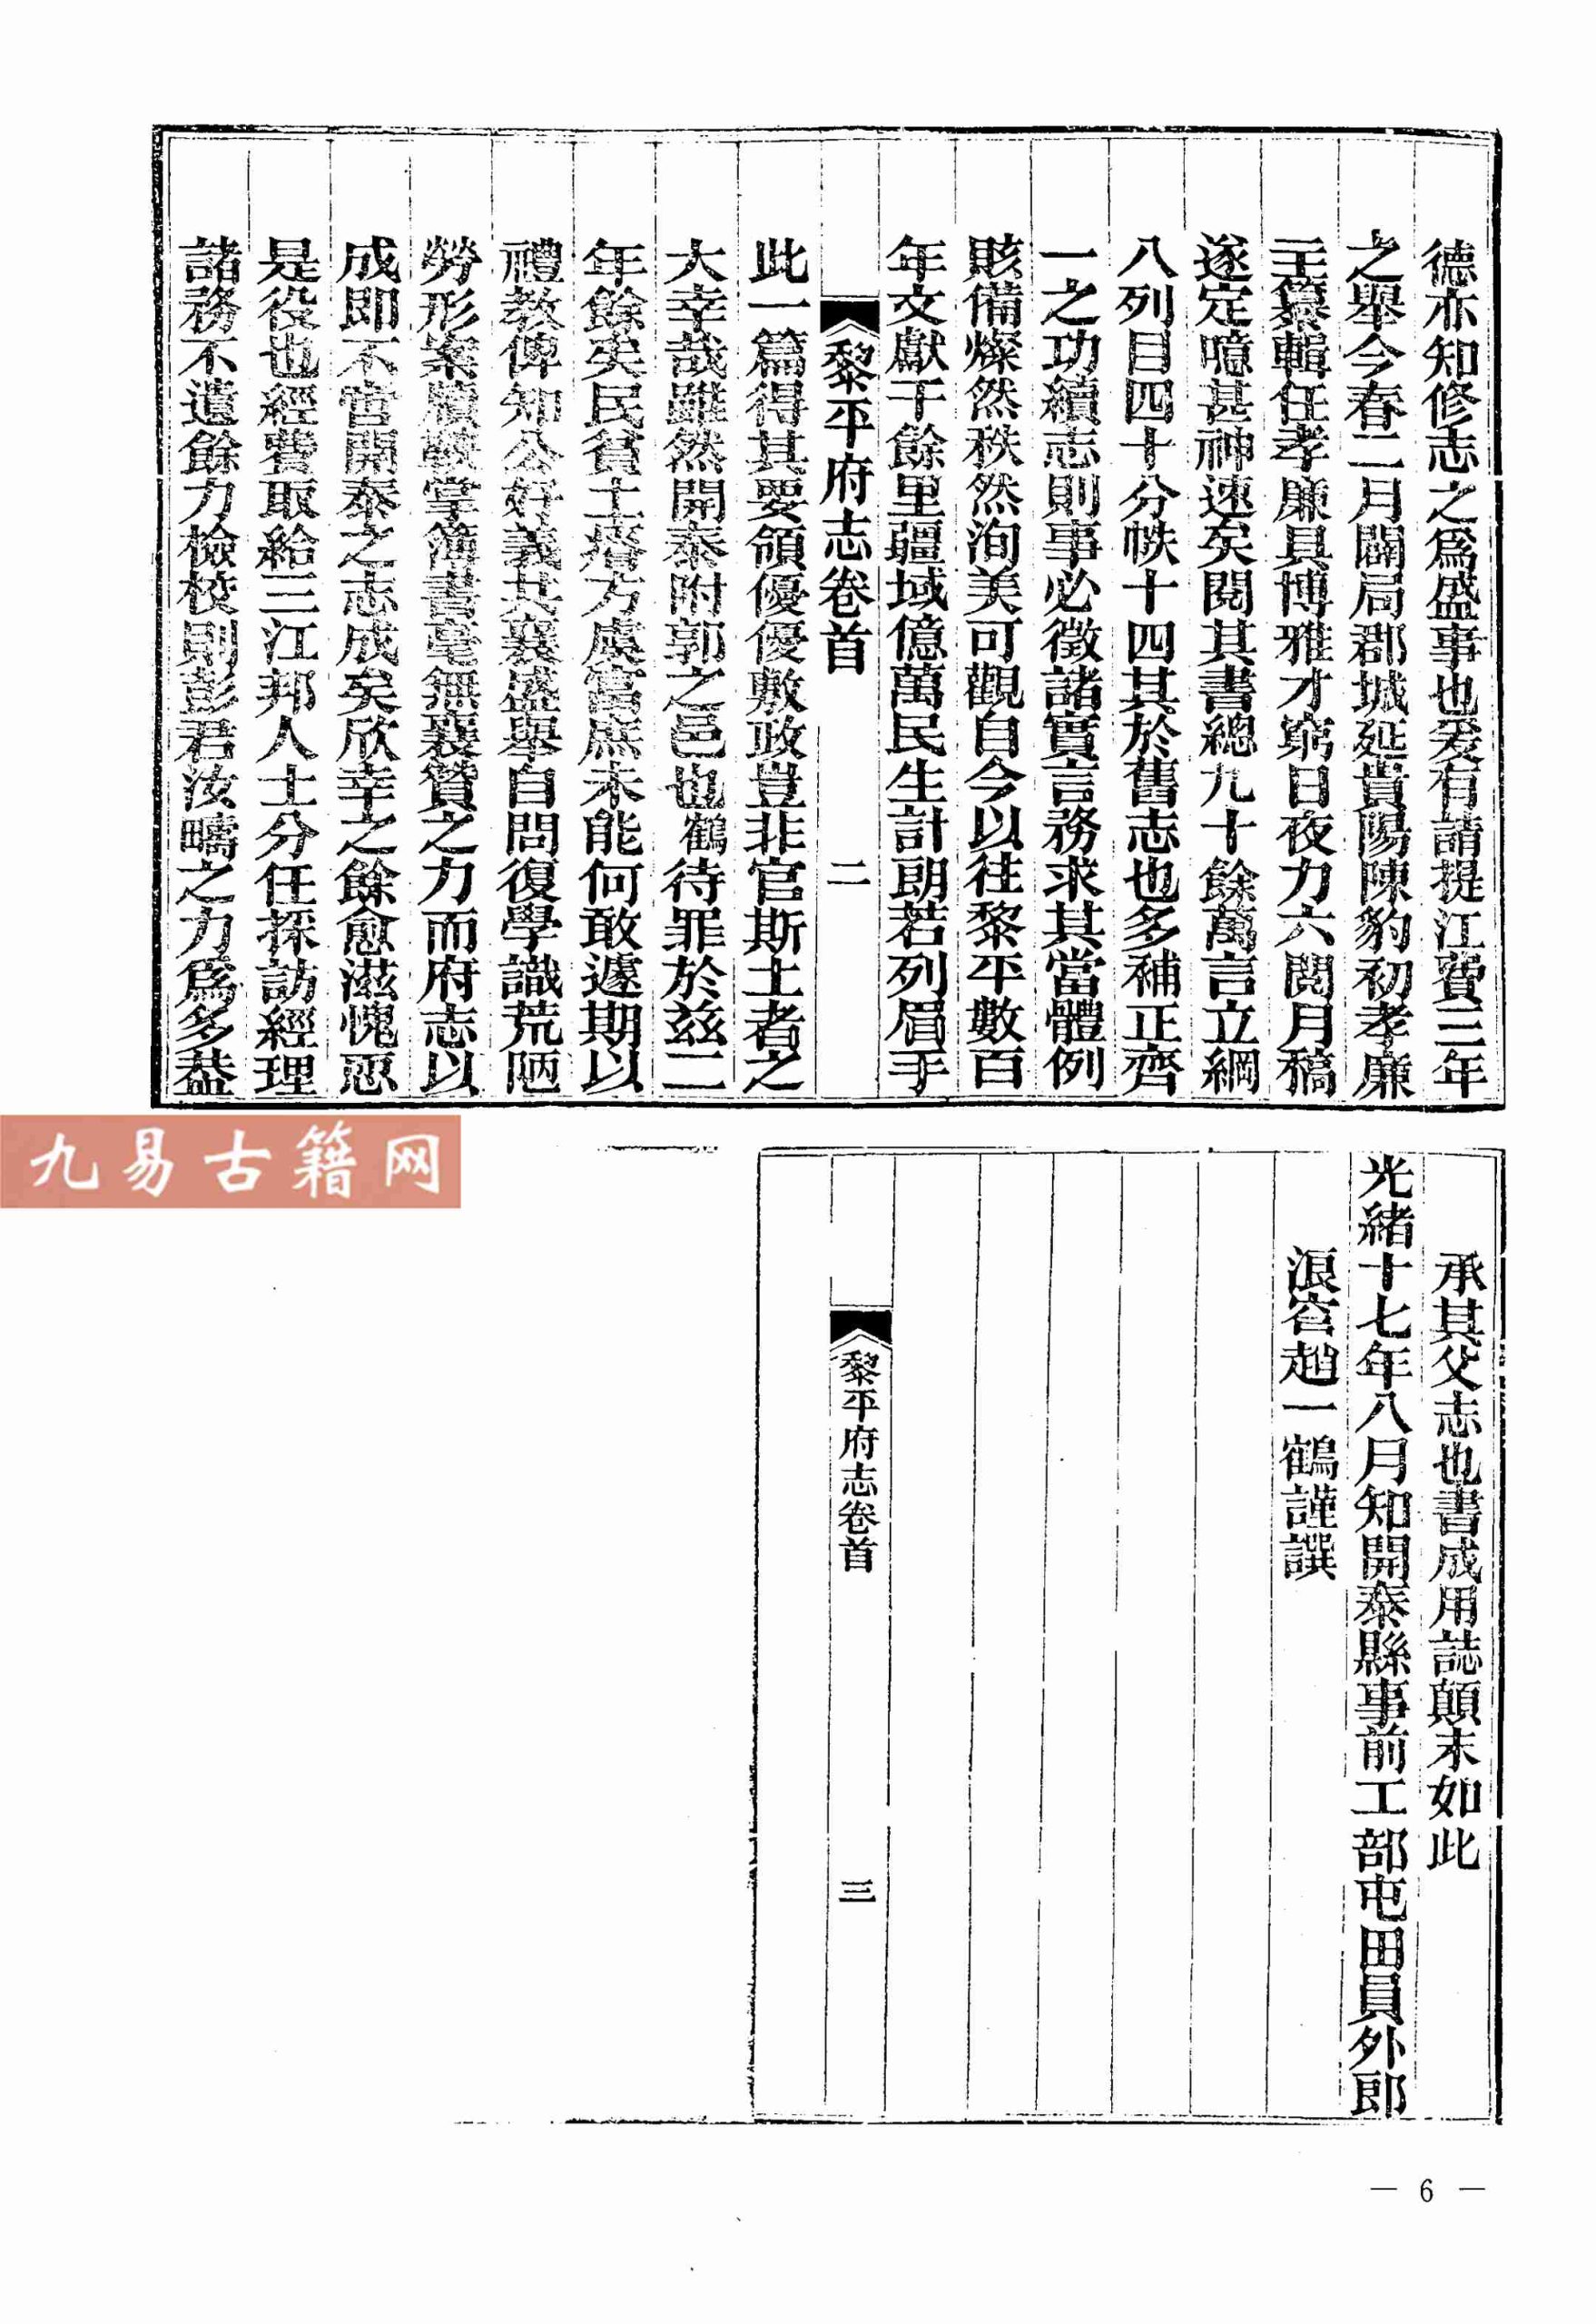 德亦知修志之爲盛事也爰有請提江費三年
之舉今春二月闢局郡城延貴陽陳豹初孝廉
主纂輯任孝廉具博雅才窮日夜力六閱月稿
遂定噫甚神速矣閱其書總九十餘萬言立綱
八列目四十分帙十四其於舊志也多補正齊
一之功續志則事必徵諸實言務求其當體例
賅備燦然秩然洵美可觀自今以往黎平數百
年文獻千餘里疆域億萬民生計朗若列眉手
黎平府志卷首
二
此一篇得其要領優優敷政豈非官斯土者之
大幸哉雖然開泰附郭之邑也鶴待罪於茲二
年餘矣民貧土瘠方虞富庶未能何敢遽期以
禮教俾知公好義共襄盛舉自問復學識荒陋
勞形案牘鞅掌簿書毫無襄贊之力而府志以
成即不啻開泰之志成矣欣幸之餘愈滋愧恧
是役也經費取給三江邦人士分任採訪經理
諸務不遺餘力檢校則彭君汝疇之力爲多葢
承其父志也書成用誌顛末如此
光緒十七年八月知開泰縣事前工部屯田員外郎
浪穹趙一鶴謹譔
黎平府志卷首
三
九易古籍网
— 6 —